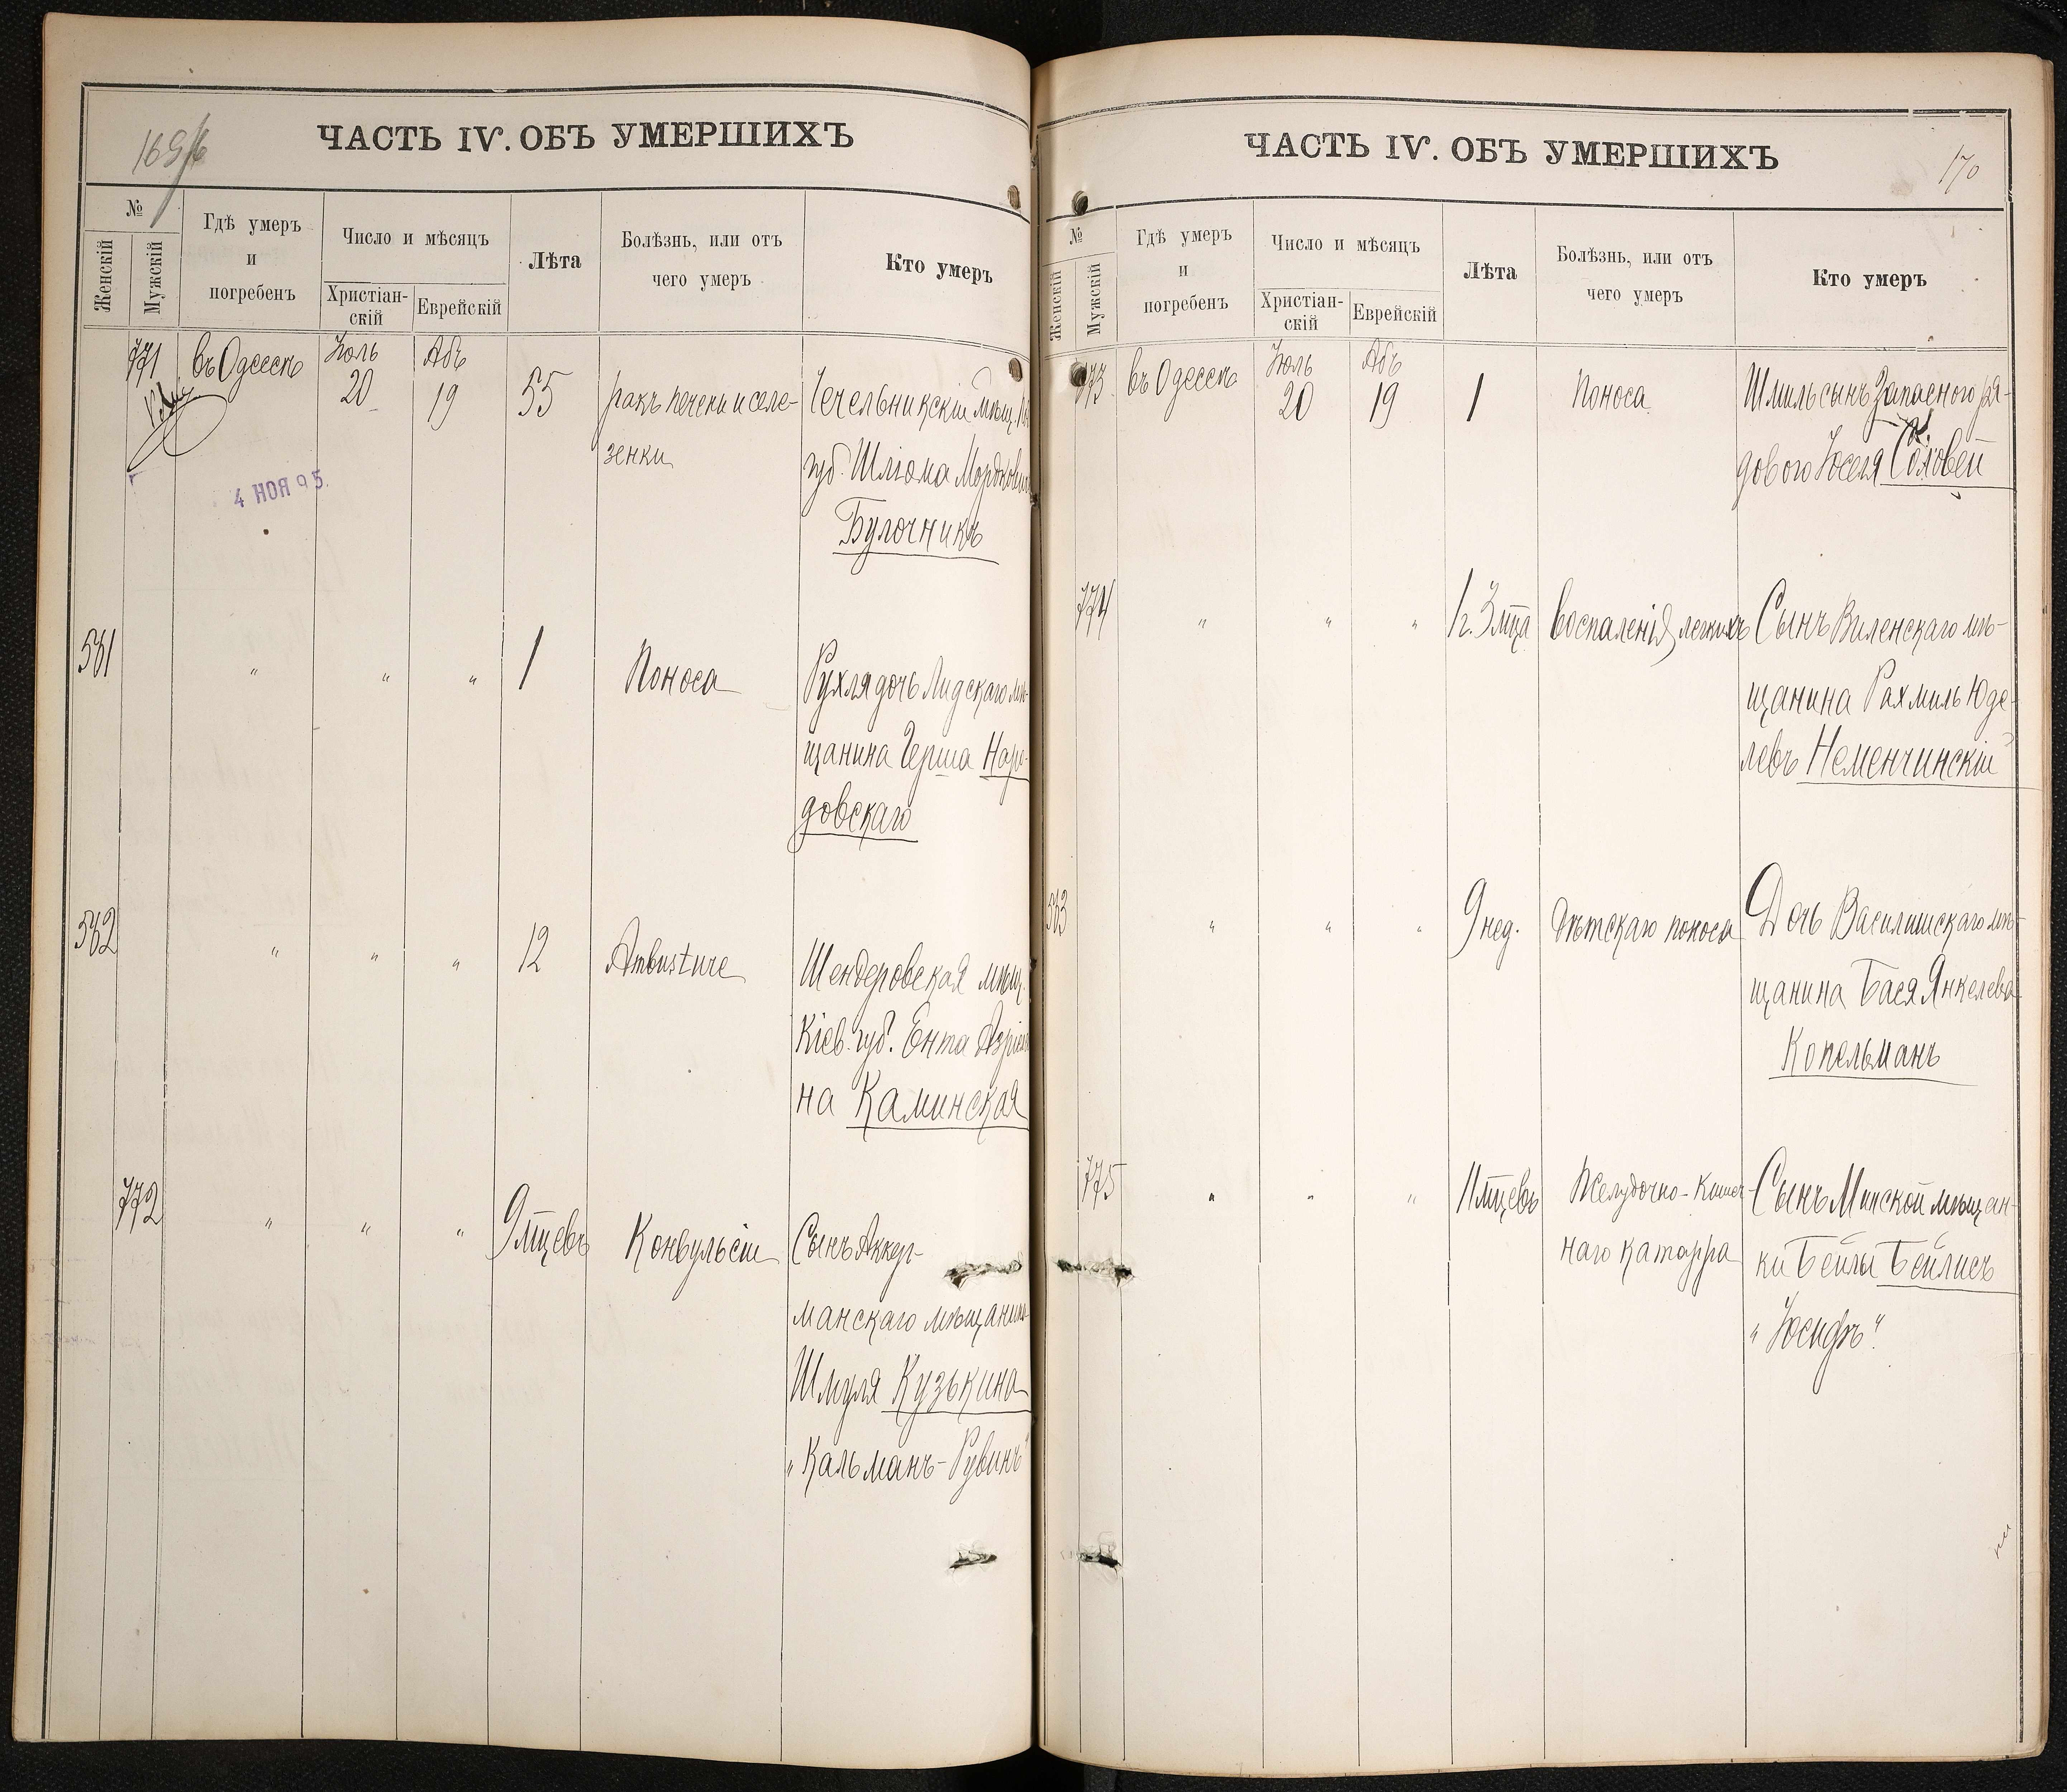 169/б
ЧАСТЬ IV. ОБЪ УМЕРШИХЪ
№
Женскій
Мужскій
Гдѣ умеръ
и
погребенъ
Число и мѣсяцъ
Христіан-
скій
Еврейскій
Лѣта
Болѣзнь, или отъ
чего умеръ
Кто умеръ
771
въ Одессѣ
Іюль
20
Абъ
19
55
ракъ печени и селе-
зенки
Чечельникскій мѣщ.
губ. Шліома
Булочникъ
4 НОЯ 95
531
"
"
"
1
Поноса
Рухля дочь Лидскаго мѣ-
щанина Герша Наро-
довскаго
532
"
"
"
12
Ambusture
Шендеровская мѣщ.
Кіев. губ. Ента
на Каминская
772
"
"
"
9 мцевъ
Конвульсіи
Сынъ Аккер-
манскаго мѣщанина
Шмуля Кузькина
"Кальманъ-Рувинъ"
170
ЧАСТЬ IV. ОБЪ УМЕРШИХЪ
№
Женскій
Мужскій
Гдѣ умеръ
и
погребенъ
Число и мѣсяцъ
Христіан-
скій
Еврейскій
Лѣта
Болѣзнь, или отъ
чего умеръ
Кто умеръ
773
въ Одессѣ
Іюль
20
Абъ
19
1
Поноса
Шмиль сынъ Запасного ря-
дового Іосея Соловей
774
"
"
"
1 г. 3 мца
Воспаленія легкихъ
Сынъ Виленскаго мѣ-
щанина Рахмиль Юде-
левъ Неменчинскій
533
"
"
"
9 нед.
Дѣтскаго поноса
Дочь Василишскаго мѣ-
щанина Бася Янкелева
Копельманъ
775
"
"
"
11 мцевъ
Желудочно-Кишеч-
наго катарра
Сынъ Минской мѣщан-
ки Бейлы Бейлисъ
"Іосифъ"